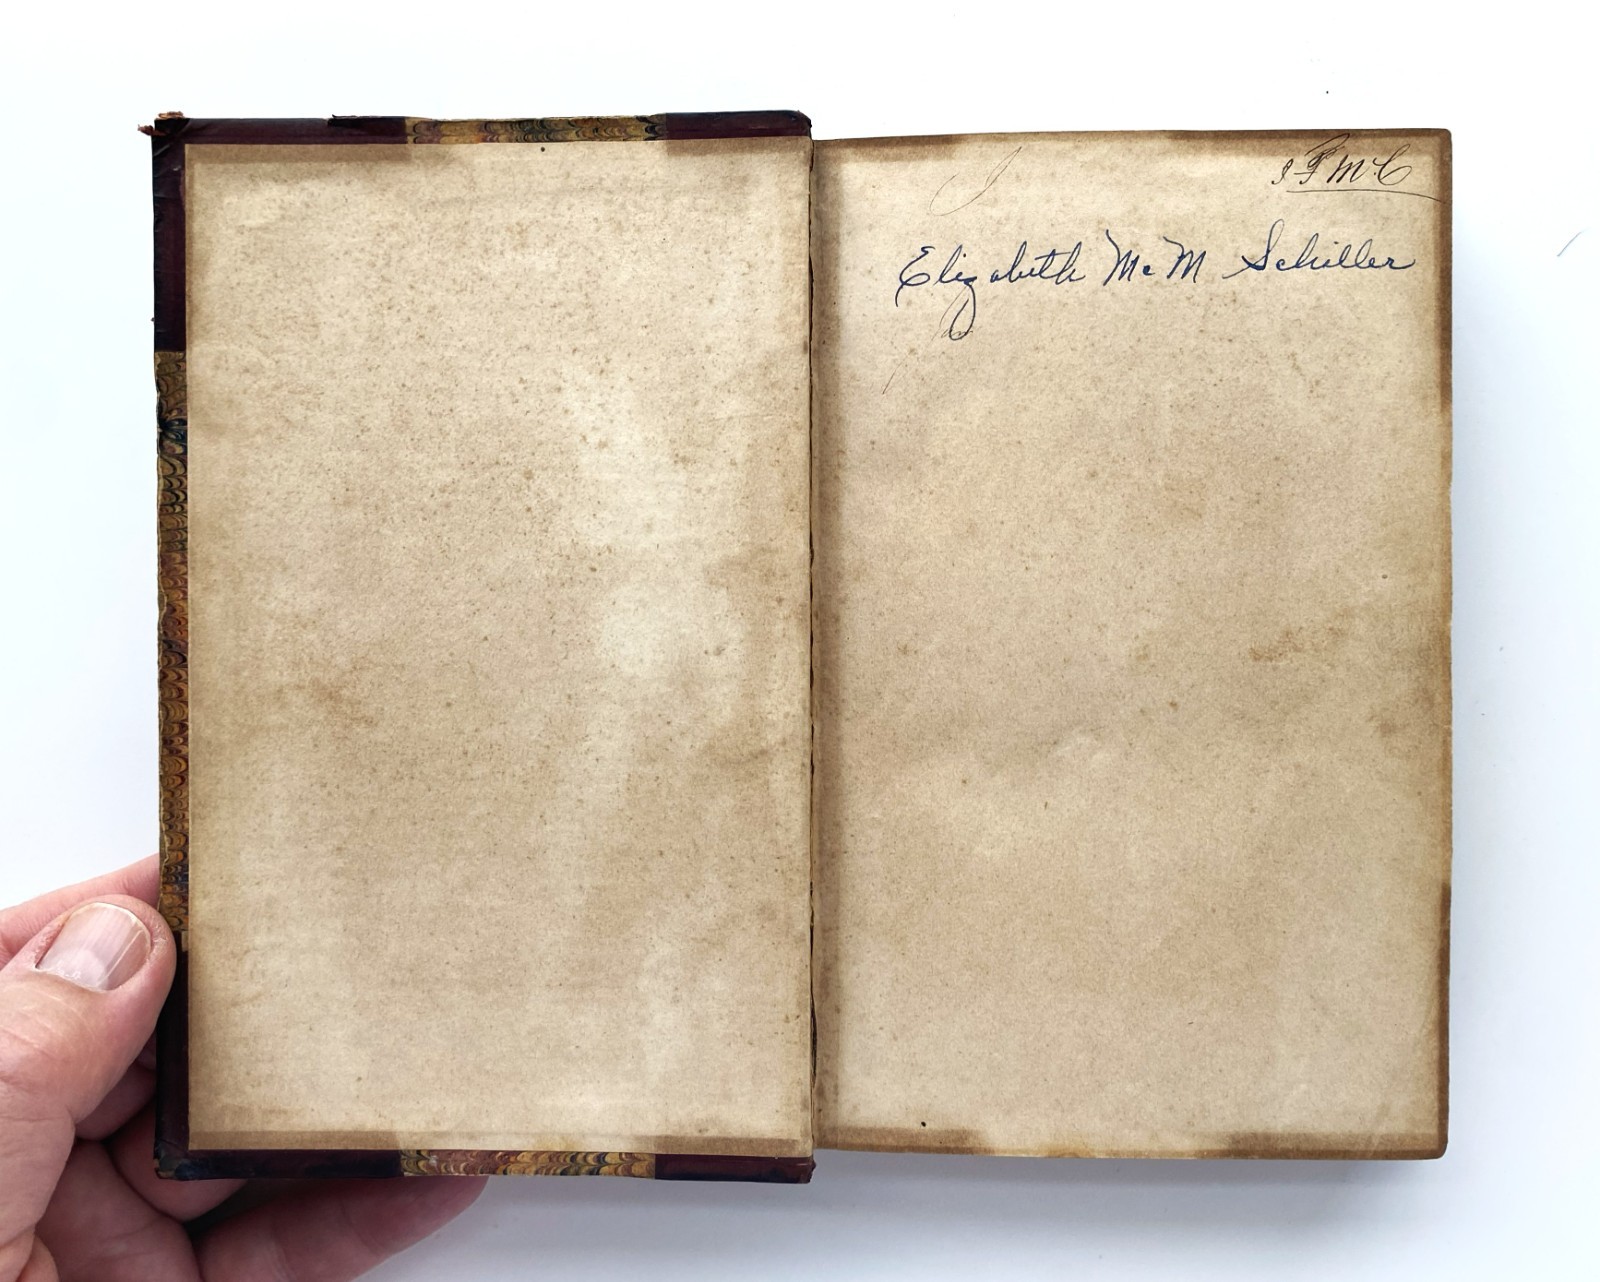 Elizabeth McM Schiller